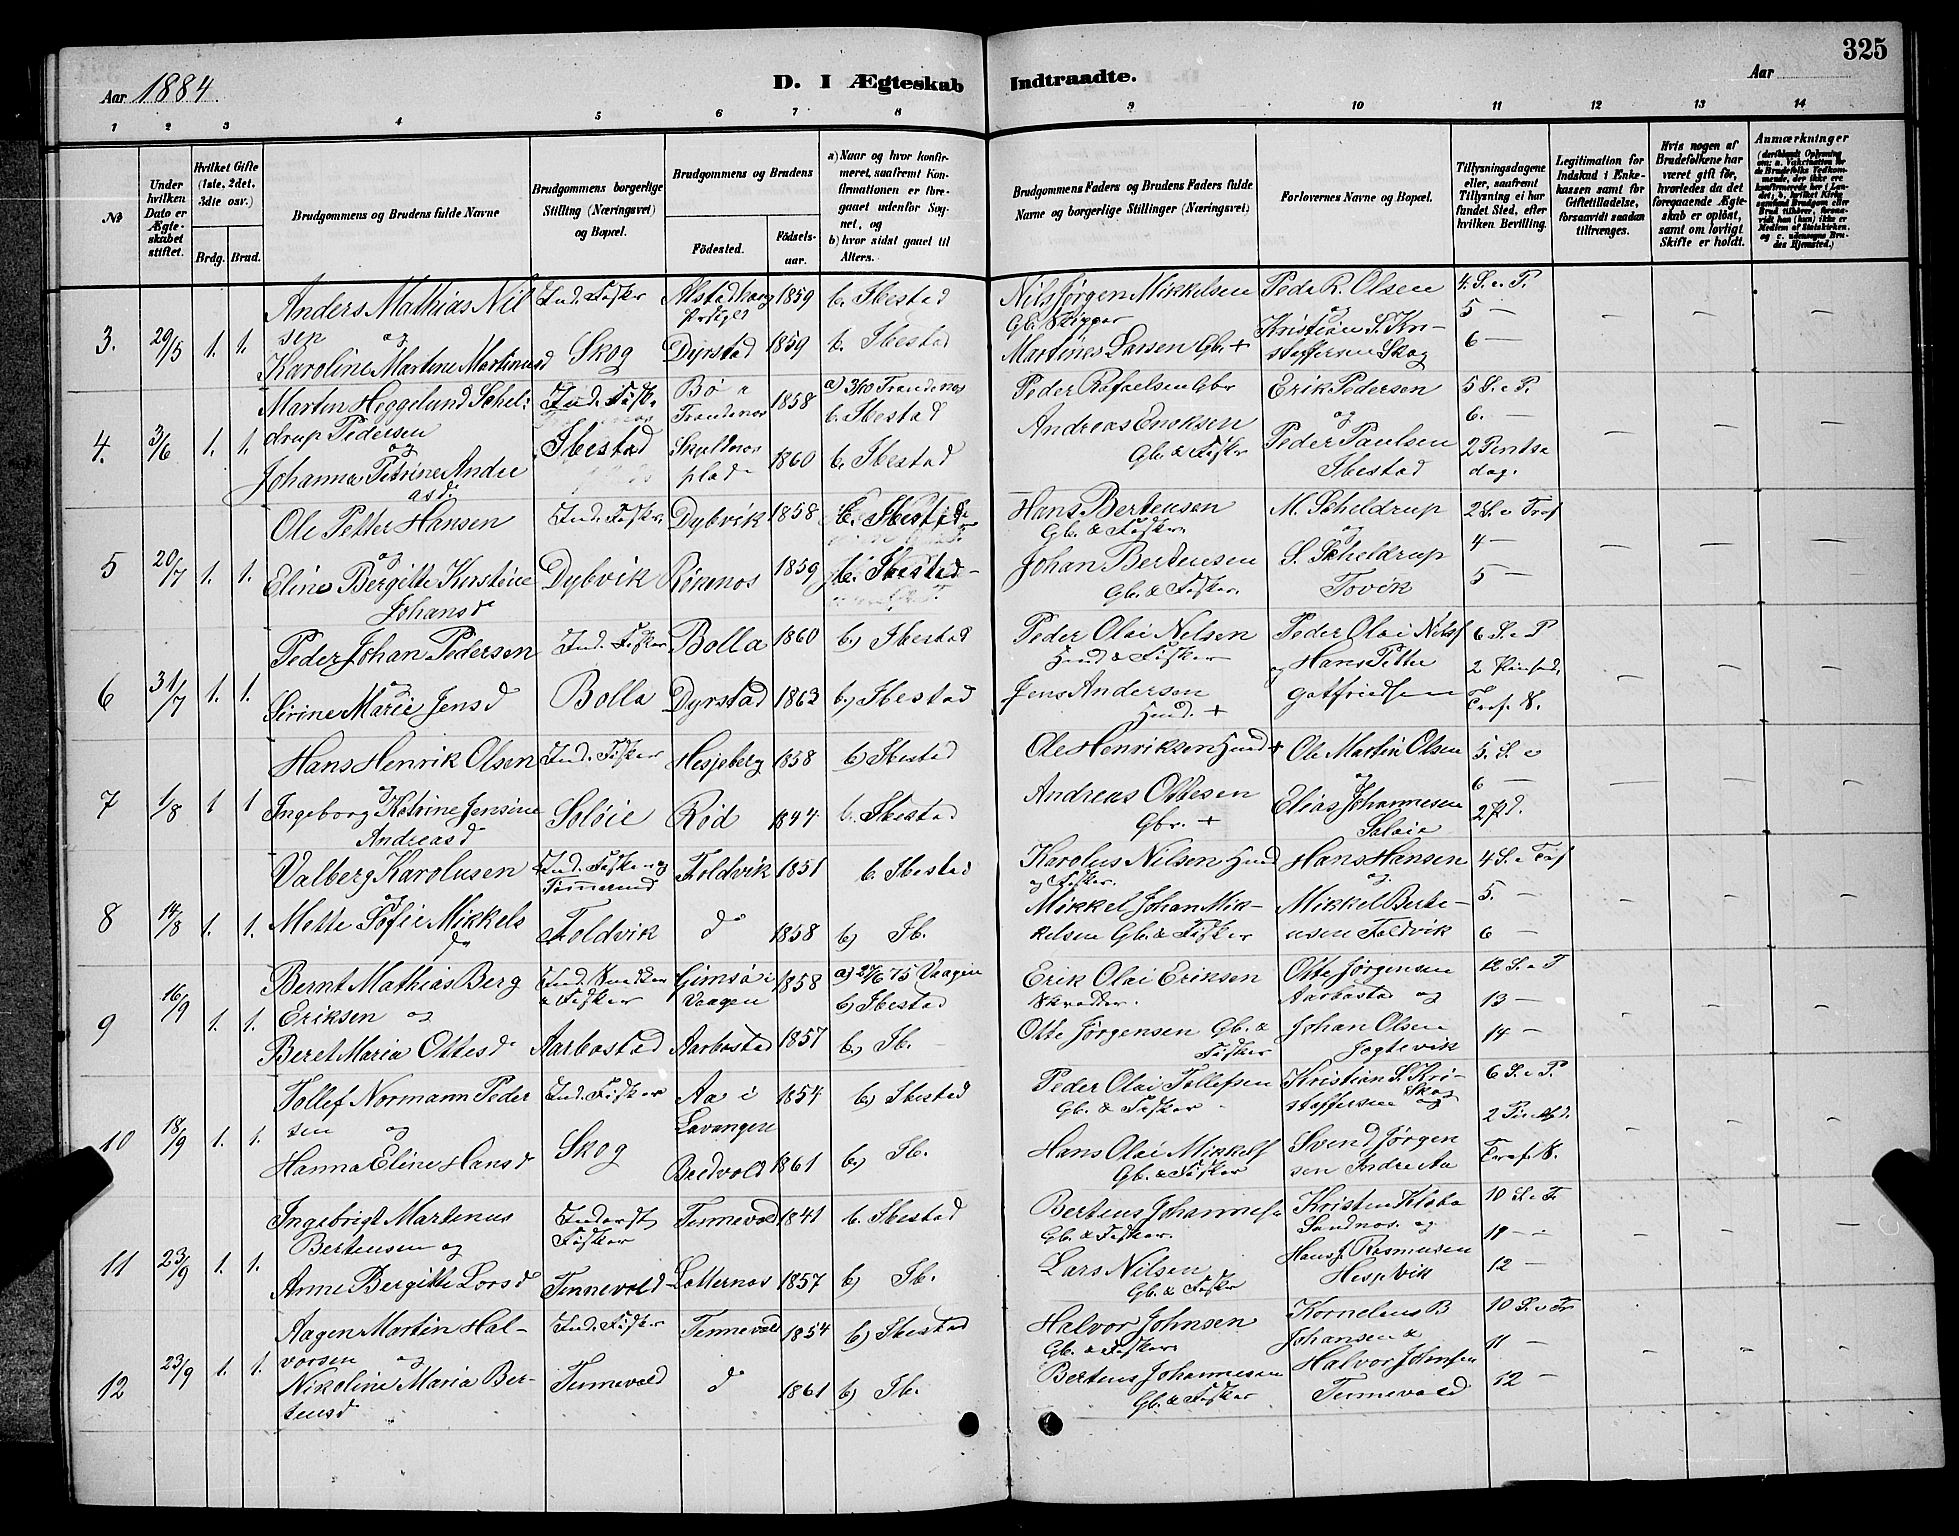 325
Aar 1884.
D. I Ægteskab Indtraadte.
Aar
1 2 3 4 5 6 7 8 9 10 11 12 13 14
№
Under hvilken Dato er Ægteskabet stiftet.
Hvilket Gifte (1ste, 2det, 3die osv.)
Brdg. Brud.
Brudgommens og Brudens fulde Navne
Brudgommens borgerlige Stilling (Næringsvei) og Bopæl.
Brudgommens og Brudens
Födested.
Födselsaar.
a) Naar og hvor konfirmeret, saafremt Konfirmationen er foregaaet udenfor Sognet, og
b) hvor sidst gaaet til Alters.
Brudgommens Faders og Brudens Faders fulde Navne og borgerlige Stillinger (Næringsvei)
Forlovernes Navne og Bopæl.
Tillysningsdagene eller, saafremt Tillysning ei har fundet Sted, efter hvilken Bevilling.
Legitimation for Indskud i Ænkekassen samt for Giftetilladelse, forsaavidt saadan tiltrænges.
Hvis nogen af Brudefolkene har været gift för, hvorledes da det foregaaende Ægteskab er oplöst, samt om lovligt Skifte er holdt.
Anmærkninger
3. 29/5 1. 1.
Anders Mathias Nilsen
og
Karoline Martine Martinusd
Ind. Fisker
Skog
Alstadhoug
Dyrstad
1859
1859
b. Ibestad
b. Ibestad
Nils Jörgen Mikkelsen
Gb. Skipper
Martines Larsen Gb. +
Peder R. Olsen
og
Kristian S. Kristoffersen Skog
4. S. e P.
5 —
6 —
4. 3/6 1. 1.
Martin Heggelund Scheldrup Pedersen
og
Johanna Petrine Andreasd
Ind. Fisk.
Ibestad
Bö i Trondenes
1858
1860
a) 3/10 Trondenes
b. Ibestad
b. Ibestad
Peder Rafaelsen Gbr
Andreas Enoksen
Gb. & Fisker
Erik Pedersen
og
Peder Paulsen
Ibestad
5 S. e P.
6. —
2 Pintsedag.
5 20/7 1. 1.
Ole Petter Hansen
og
Eline Bergitte Kirstine
Johansd
Ind. Fisker
Dybvik
Dybvik
Rökenes
1858
1859
b. Ibestad
b. Ibestad
Hans Bertensen
Gb. & Fisker
Johan Bertensen
Gb. & Fisker.
M. Scheldrup
og
S. Scheldrup
Tovik
2 S. e Tref
4 —
5 —
6 31/7 1. 1.
Peder Johan Pedersen
og
Sirine Marie Jensd
Ind. Fisker
Bolla
Bolla
Dyrstad
1860
1863
b) Ibestad
b) Ibestad
Peder Olai Nelsen
Hmd & Fisker
Jens Andersen
Hmd. +
Peder Olai Nilsf
og Hans Petter
Gotfriedsen
6 S. e P
2 Pintsed.
Tref. S.
7 1/8 1 1
Hans Henrik Olsen
og
Ingeborg Katrine Jensine
Andreasd
Ind. Fisker
Solöie
Hesjeberg
Röd
1858
1844
b) Ibestad
b. Ibestad
Ole Henriksen Hmd +
Andreas Ottesen
Gbr. +
Ole Martin Olsen
og
Elias Johannesen
Solöie
5. S. e
6 —
2 Pd.
8 14/8 1. 1.
Valberg Karolusen
og
Mette Sofie Mikkelsd
Ind. Fisker og Tömmermd
Foldvik
Foldvik
d
1851
1858
b. Ibestad
b) Ib.
Karolus Nilsen Hmd
og Fisker.
Mikkel Johan Mikkelsen Gb. & Fisker
Hans Hansen
og
Mikkel Bertensen Foldvik
4 S. e Tref
5. —
6 —
9 16/9 1. 1.
Bernt Mathias Berg
Eriksen og
Beret Maria Ottesd
Ind. Snedker & Fisker
Aarbostad
Gimsö i Vaagen
Aarbostad
1858
1857
a) 27/6 75 Vaagen
b) Ibestad
b.) Ib. —
Erik Olai Eriksen
Skrædder.
Otte Jörgensen Gb. & Fisker
Otte Jörgensen
Aarbostad og
Johan Olsen
Jogtevik
12 S. e T
13 —
14 —
10 18/9 1. 1.
Tollef Normann Pedersen og
Hanna Eline Hansd
Ind. Fisker
Skog
Aa i Lavangen
Bredvold
1854
1861
b) Ibestad
b) Ib.
Peder Olai Tollefsen
Gb. & Fisker
Hans Olai Mikkelsf
Gb. & Fisker
Kristian S. Kristoffersen Skog og
Svend Jörgensen Indre Aa
6 S. e P.
2 Pintsd.
Tref. S.
11 23/9 1. 1.
Ingebrigt Martinus
Bertensen og
Anne Bergitte Larsd
Inderst Fisker
Tennevold
Tennevold
Lotternes
1841
1857
b. Ibestad
b) Ib.
Bertens Johannesen
Gb. & Fisker.
Lars Nilsen
Gb. & Fisker
Kristen Kloba
Sandnes. og
Hans J. Rasmusen
Hespvik
10 S. e T.
11 —
12 —
12 23/9 1. 1.
Aagen Martin Halvorsen og
Nikoline Maria Bertensd
Ind. Fisker
Tennevold
Tennevold
d
1854
1861
b) Ibestad
b) Ib.
Halvor Johnsen
Gb. & Fisker
Bertens Johannesen
Gb. & Fisker
Kornelius B
Johansen &
Halvor Johnsen
Tennevold
10 S. e Tr
11 —
12 —